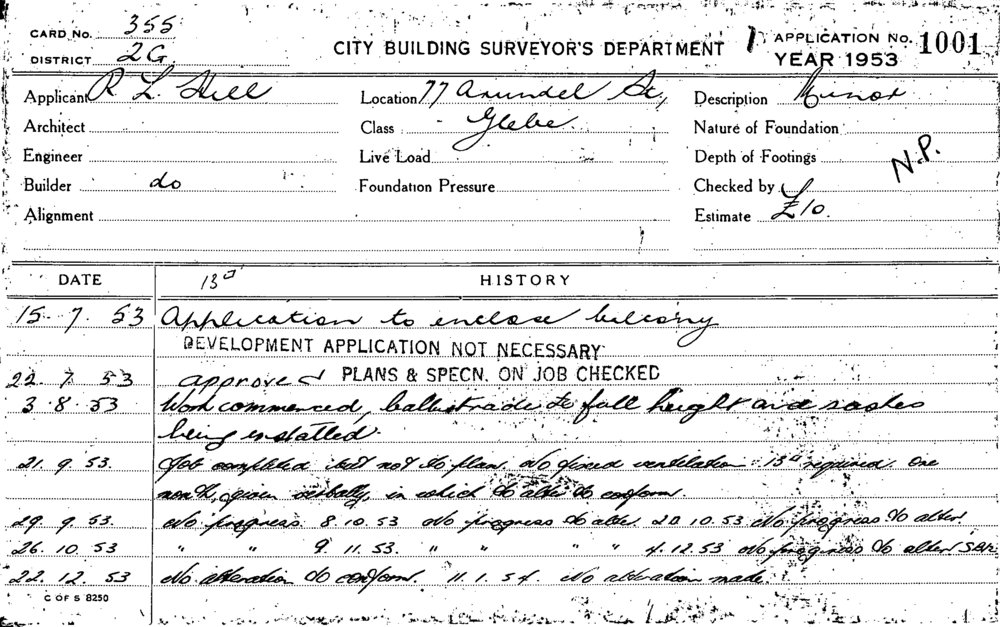 CARD No. 355
DISTRICT 2G
CITY BUILDING SURVEYOR'S DEPARTMENT
APPLICATION No. 1001
YEAR 1953
Applicant R L Hill
Location 77 Arundel St,
Description Minor
Architect
Class Glebe
Nature of Foundation
Engineer
Live Load
Depth of Footings
N.P.
Builder do
Foundation Pressure
Checked by
Alignment
Estimate £10.
DATE
HISTORY
15. 7. 53 Application to enclose balcony
DEVELOPMENT APPLICATION NOT NECESSARY
22. 7. 53 approved PLANS & SPECN. ON JOB CHECKED
3. 8. 53 Work commenced, ballustrade to full height and sashes
being installed.
21. 9. 53. Job completed but not to plan. No fixed ventilation required. One
month, given verbally, in which to alter to conform.
29. 9. 53. No progress. 8.10.53 No progress to alter. 20.10.53 No progress to alter.
26. 10. 53 " " 9. 11. 53. " " " " 4.12.53 No progress to alter
22. 12. 53 No alteration to conform. 11.1.54. No alteration made.
C OF S 8250